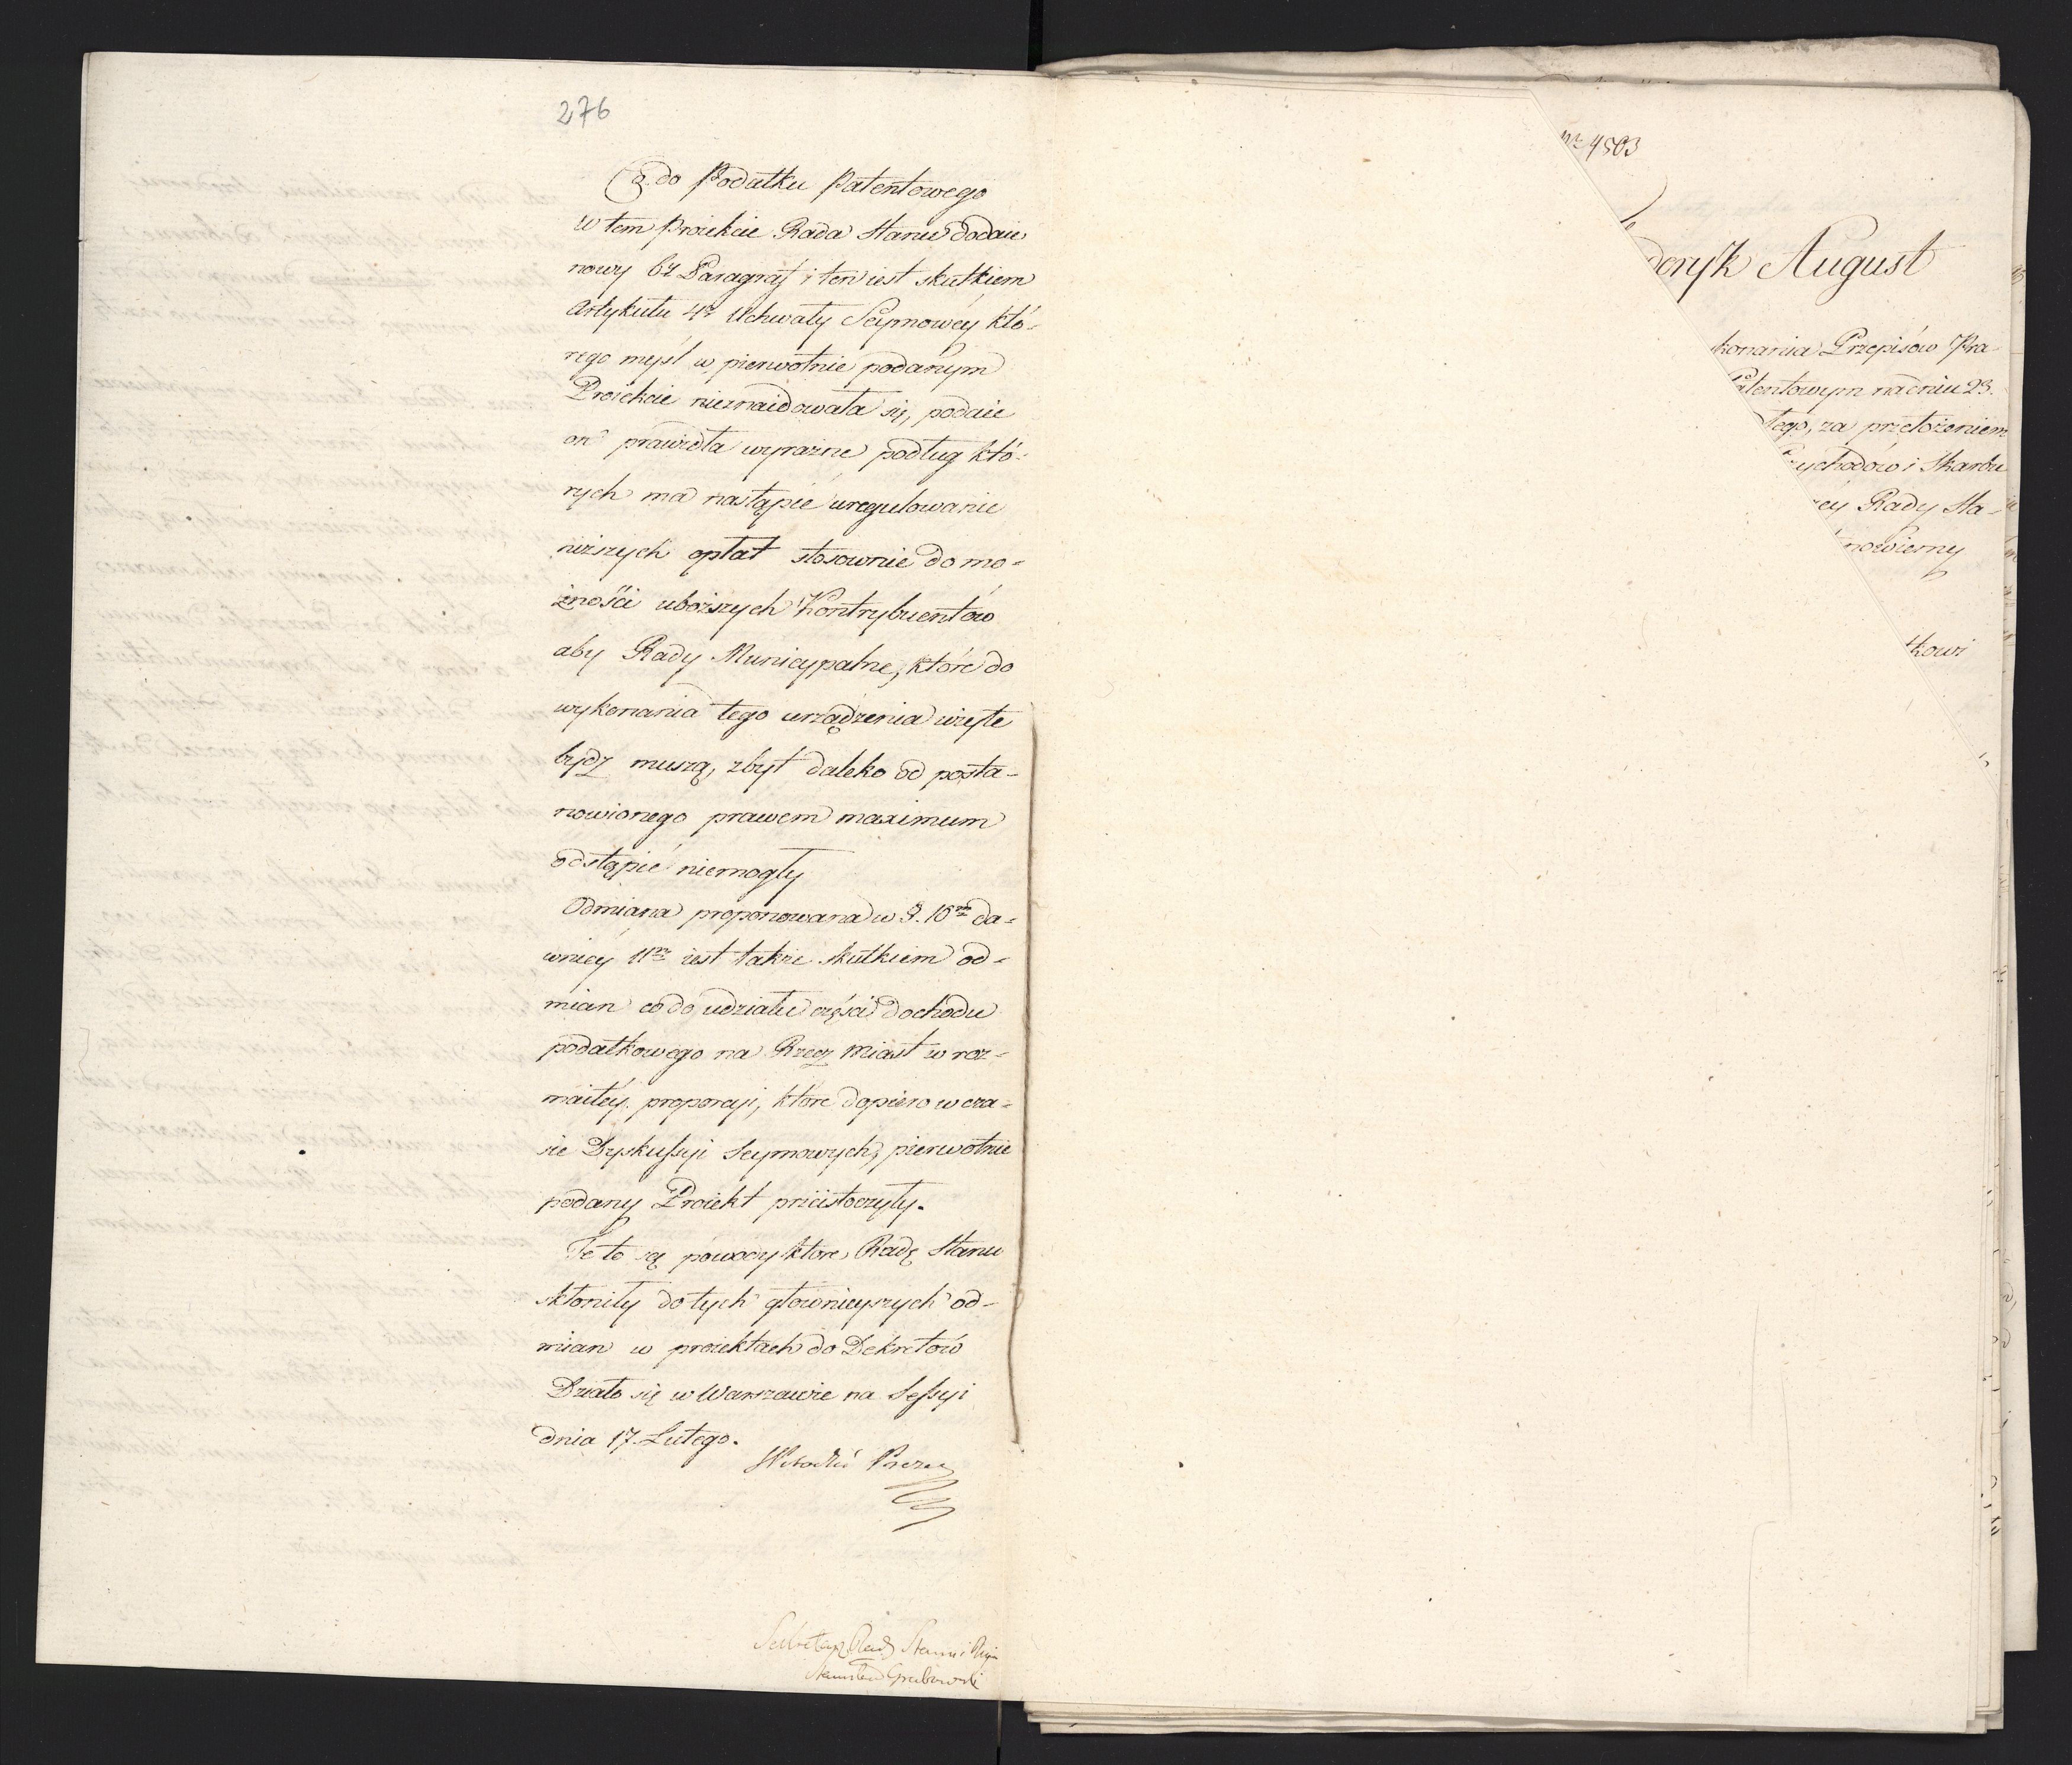 276
Co do Podatku Patentowego
w tem Proiekcie Rada Stanu dodaie
nowy 6ty Paragraf i ten iest skutkiem
Artykułu 4go Uchwały Seymowéy któ-
rego myśl w pierwotnie podanym
Proiekcie nieznaidowała się, podaie
on prawidła wyraźne podług któ-
rych ma nastąpić uregulowanie
niższych opłat stosownie do mo-
żności uboższych Kontrybuentów
aby Rady Municypalne, które do
wykonania tego urządzenia użyte
bydź muszą, zbyt daleko od posta-
nowionego prawem maximum
odstąpić niemogły
Odmiana proponowana w §. 10m da-
wniéy 11m iest także skutkiem od-
mian co do udziału części dochodu
podatkowego na Rzecz Miast w roz-
maitéy proporcyi, które dopiero w cza-
sie Dyskussyi Seymowych, pierwotnie
podany Proiekt przeistoczyły.
Te to są powody które Radę Stanu
skłoniły do tych głównieyszych od-
mian w proiektach do Dekretów
Działo się w Warszawie na Sessyi
dnia 17. Lutego.
Sekretarz Rady Stanu i
Stanisław Grabowski
nr 4503
deryk August
konania Przepisów Pra-
Patentowym na dniu 23.
tego, za przełożeniem
rzychodów i Skarbu
zéy Rady Sta-
nowiemy
tkowi